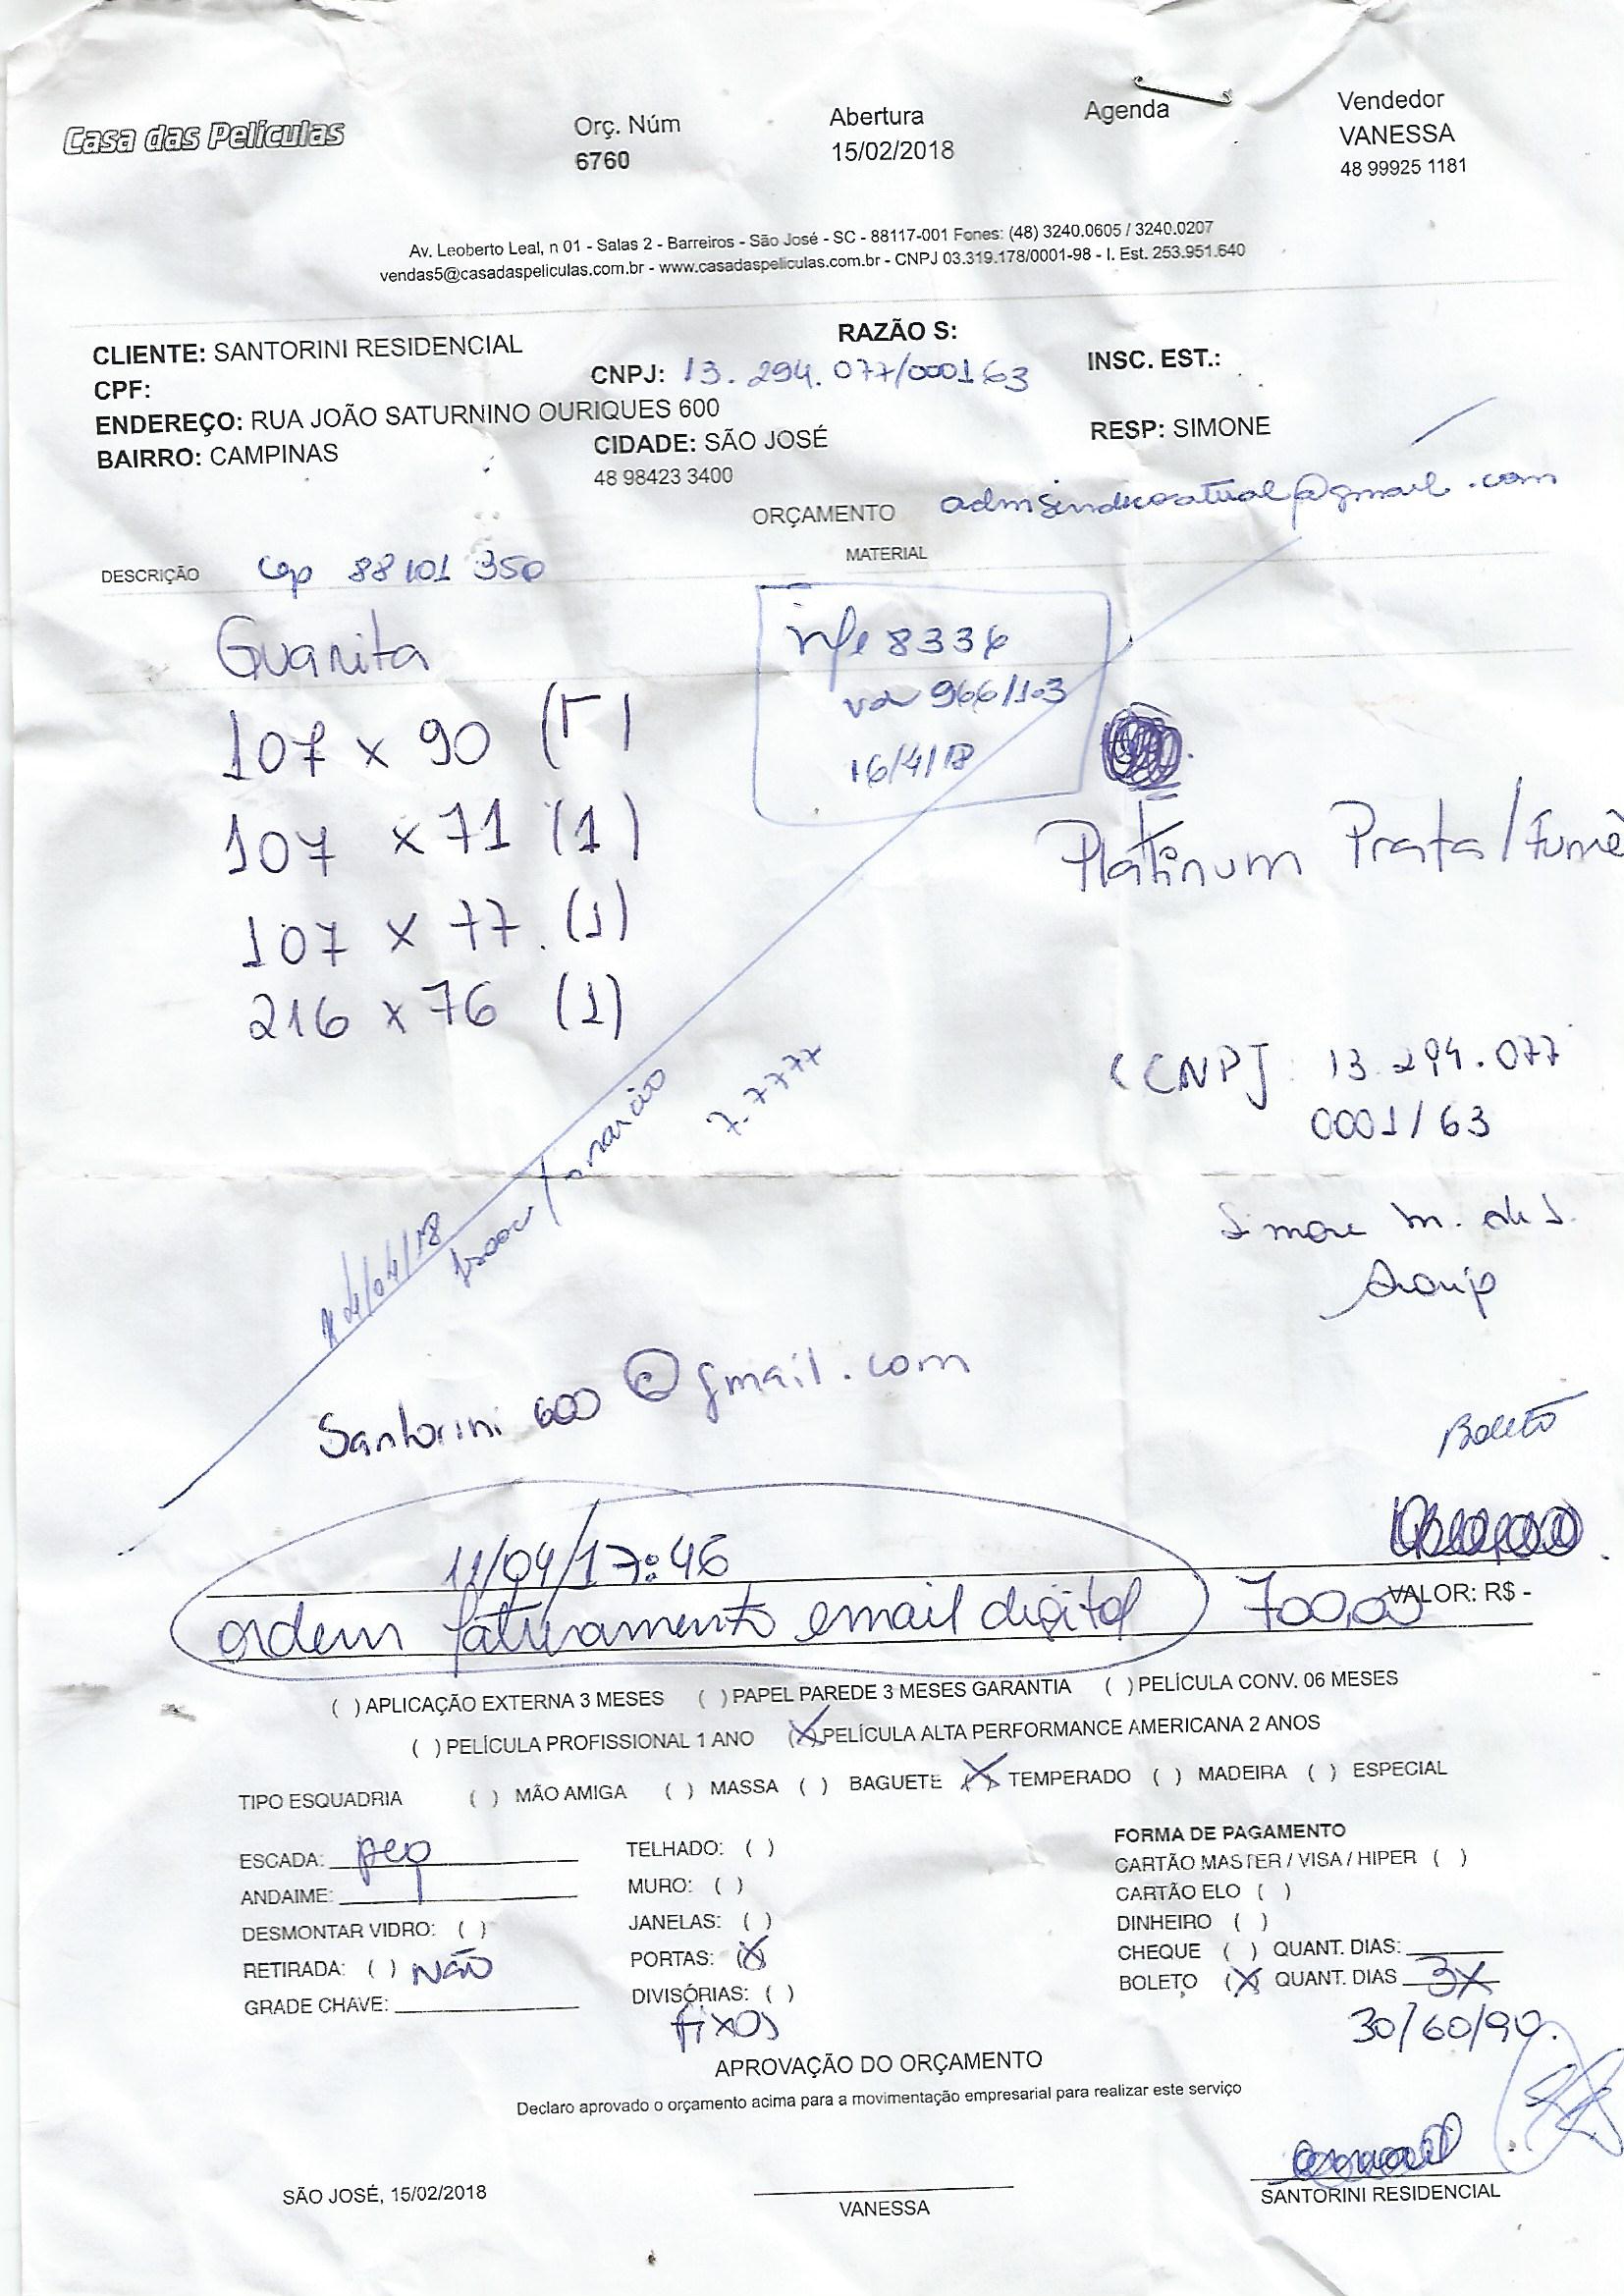 Casa das Películas
Orç. Núm
6760
Abertura
15/02/2018
Agenda
Vendedor
VANESSA
48 99925 1181
Av. Leoberto Leal, n 01 - Salas 2 - Barreiros - São José - SC - 88117-001 Fones: (48) 3240.0605 / 3240.0207
vendas5@casadaspeliculas.com.br - www.casadaspeliculas.com.br - CNPJ 03.319.178/0001-98 - I. Est. 253.951.640
CLIENTE: SANTORINI RESIDENCIAL
RAZÃO S:
CPF:
CNPJ: 13.294.077/000163
INSC. EST.:
ENDEREÇO: RUA JOÃO SATURNINO OURIQUES 600
BAIRRO: CAMPINAS
CIDADE: SÃO JOSÉ
RESP: SIMONE
48 98423 3400
ORÇAMENTO
admsindicoatual@gmail.com
MATERIAL
DESCRIÇÃO
Cep 88101 350
Guarita
nfe 8336
966/103
16/4/18
107 x 90 (1)
107 x 71 (1)
107 x 77 (1)
216 x 76 (1)
Platinum Prata/Fumê
CNPJ: 13.294.077
0001/63
7.7777
/04/18
Simone M. de S.
Araujo
Santorini600@gmail.com
Boleto
11/04/17:46
ordem faturamento email digital
700,00
VALOR: R$ -
( ) APLICAÇÃO EXTERNA 3 MESES ( ) PAPEL PAREDE 3 MESES GARANTIA ( ) PELÍCULA CONV. 06 MESES
( ) PELÍCULA PROFISSIONAL 1 ANO (X) PELÍCULA ALTA PERFORMANCE AMERICANA 2 ANOS
TIPO ESQUADRIA ( ) MÃO AMIGA ( ) MASSA ( ) BAGUETE (X) TEMPERADO ( ) MADEIRA ( ) ESPECIAL
ESCADA: peq
ANDAIME:
DESMONTAR VIDRO: ( )
RETIRADA: ( ) NÃO
GRADE CHAVE:
TELHADO: ( )
MURO: ( )
JANELAS: ( )
PORTAS: (X)
DIVISÓRIAS: ( )
fixos
FORMA DE PAGAMENTO
CARTÃO MASTER / VISA / HIPER ( )
CARTÃO ELO ( )
DINHEIRO ( )
CHEQUE ( ) QUANT. DIAS:
BOLETO (X) QUANT. DIAS 3X
30/60/90.
APROVAÇÃO DO ORÇAMENTO
Declaro aprovado o orçamento acima para a movimentação empresarial para realizar este serviço
SÃO JOSÉ, 15/02/2018
VANESSA
SANTORINI RESIDENCIAL